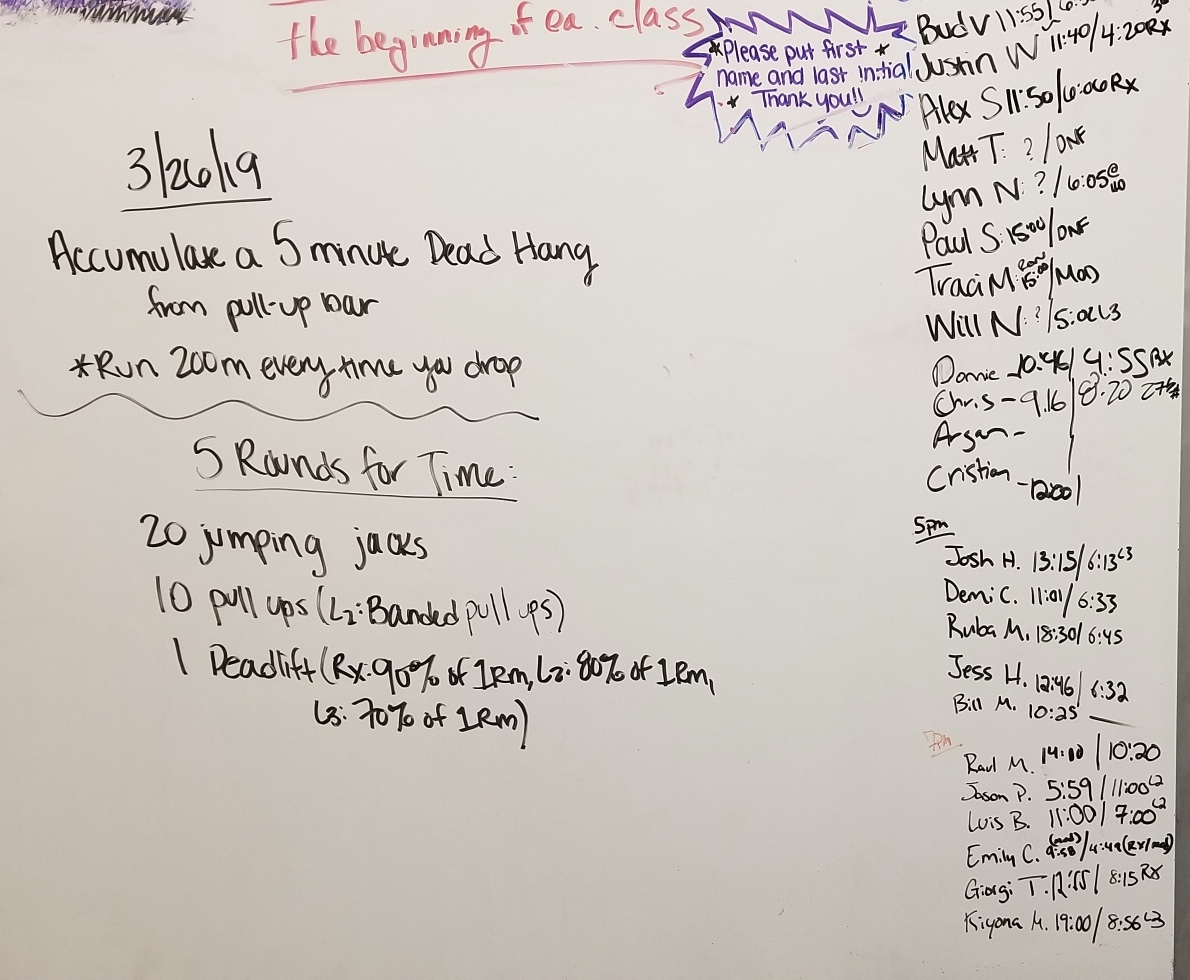 the beginning of ea. class
*Please put first *
name and last initial
* Thank you!!
3/26/19
Accumulate a 5 minute Dead Hang
from pull-up bar
*Run 200m every time you drop
5 Rounds for Time:
20 jumping jacks
10 pull ups (L2: Banded pull ups)
1 Deadlift (Rx: 90% of 1Rm, L2: 80% of 1Rm,
L3: 70% of 1Rm)
Bud V 11:55/
Justin W 11:40/4:20Rx
Alex S 11:50/6:06Rx
Matt T: ?/DNF
Lynn N: ?/6:05@
Paul S: 15:00/DNF
Traci M: Row 15:00/Mod
Will N: ?/5:02L3
Donnie - 10:46/4:55Rx
Chris - 9.16/8.20 275#
Argan -
Cristian - 12:00/
5pm
Josh H. 13:15/6:13L3
Demi C. 11:01/6:33
Ruba M. 18:30/6:45
Jess H. 12:46/6:32
Bill M. 10:25 —
7pm
Raul M. 14:00/10:20
Jason P. 5:59/11:00L2
Luis B. 11:00/7:00L2
Emily C. (mod) 9:58/4:49(Rx/mod)
Giorgi T. 12:55/8:15RX
Kiyona M. 19:00/8:56L3